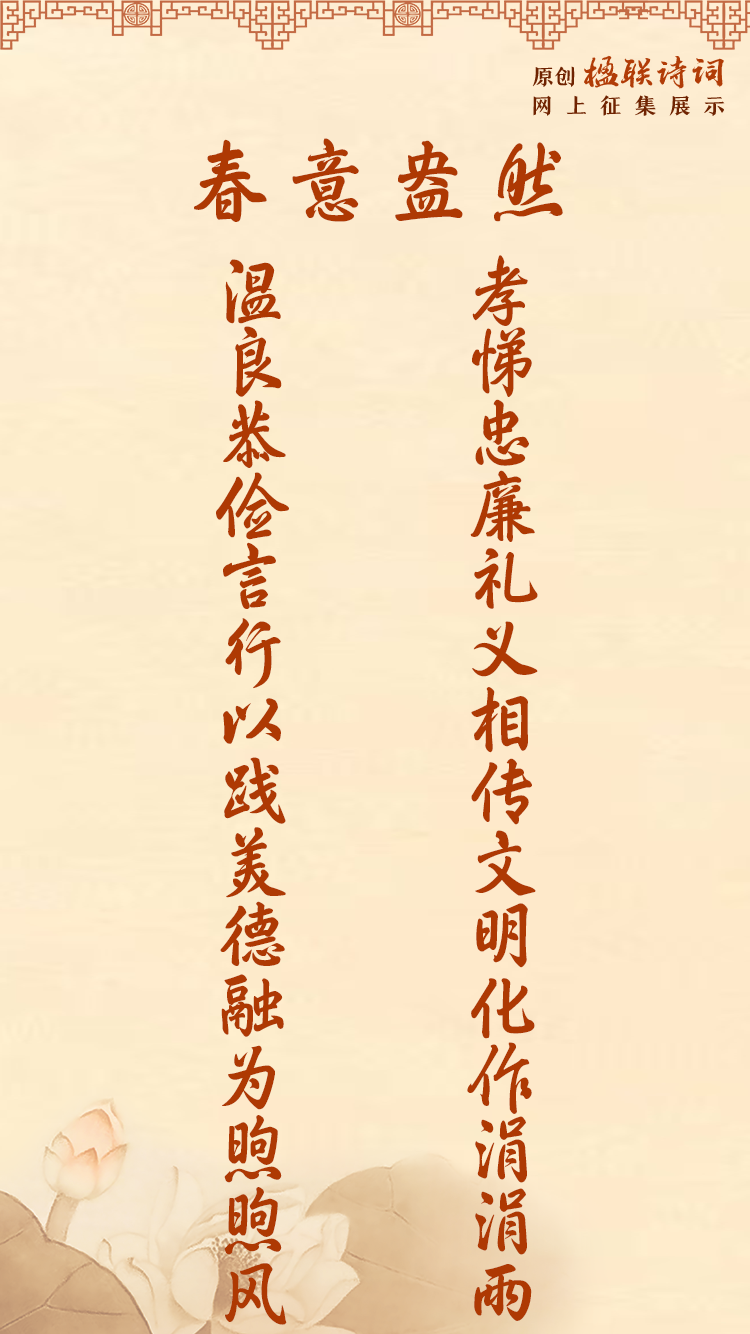 原创 楹联诗词
网上征集展示
春意盎然
孝悌忠廉礼义相传文明化作涓涓雨
温良恭俭言行以践美德融为煦煦风